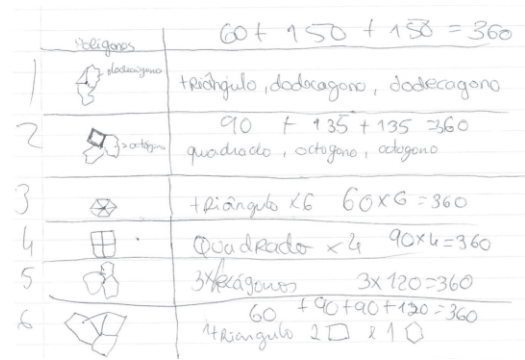 Polígonos
60 + 150 + 150 = 360
1
dodecágono
triângulo, dodecagono, dodecagono
2
octógono
90 + 135 + 135 = 360
quadrado, octogono, octogono
3
triângulo x6 60x6 = 360
4
Quadrado x 4 90x4 = 360
5
3x hexágonos 3x120 = 360
6
60 + 90 + 90 + 120 = 360
1 triangulo 2 □ e 1 ⬡